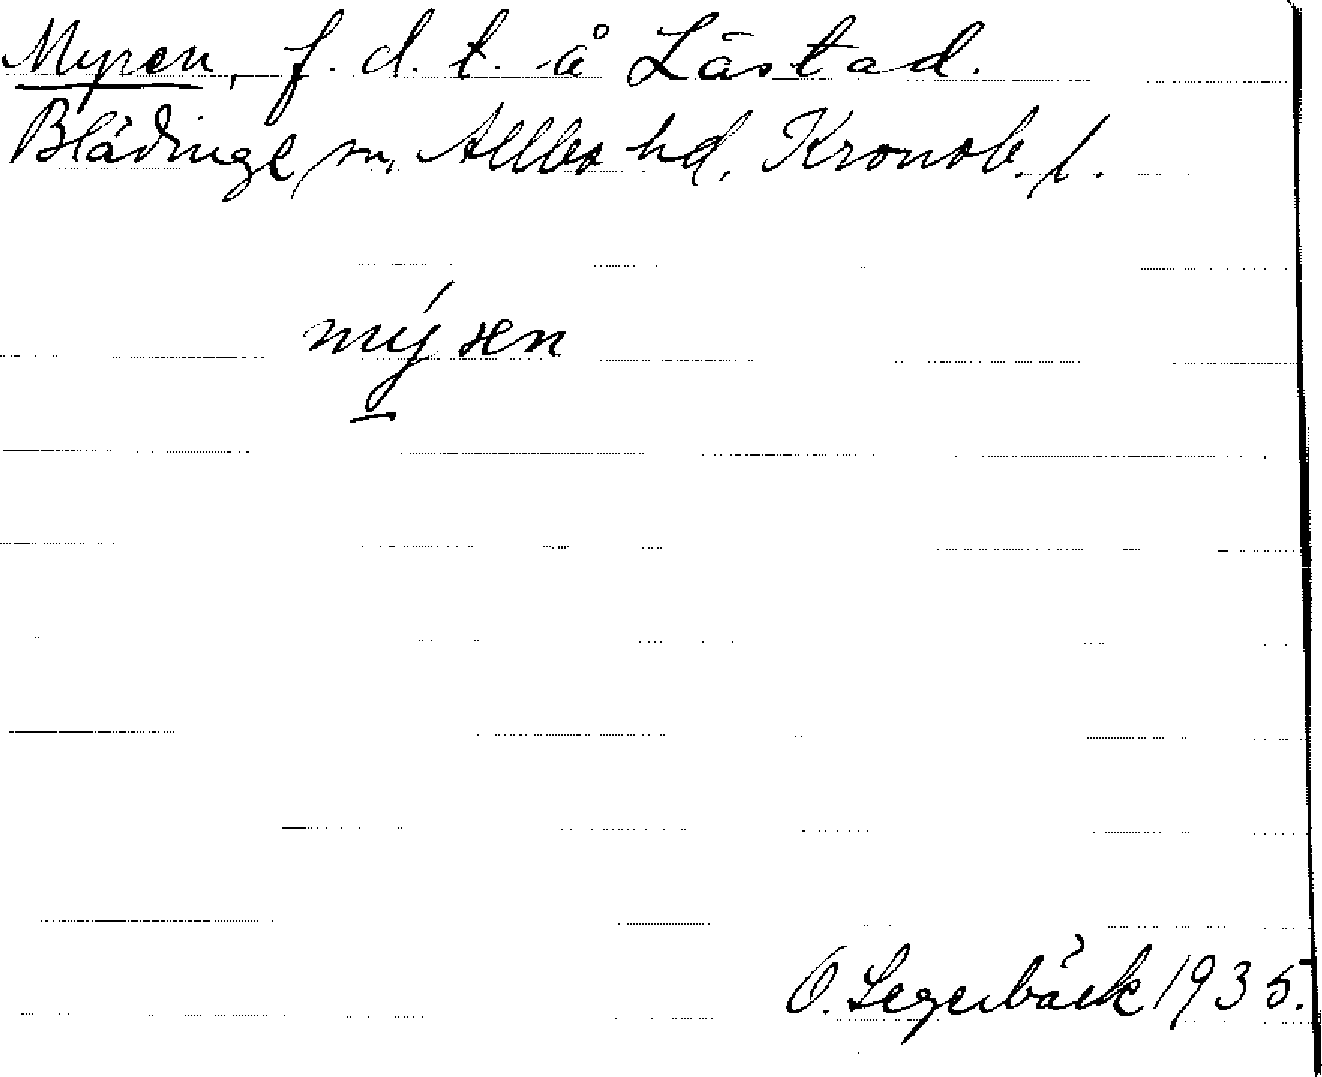 Myren, f. d. t. å Låstad.
Blädinge sn, Allbo hd, Kronob. l.
mýren
O. Segerbäck 1935.